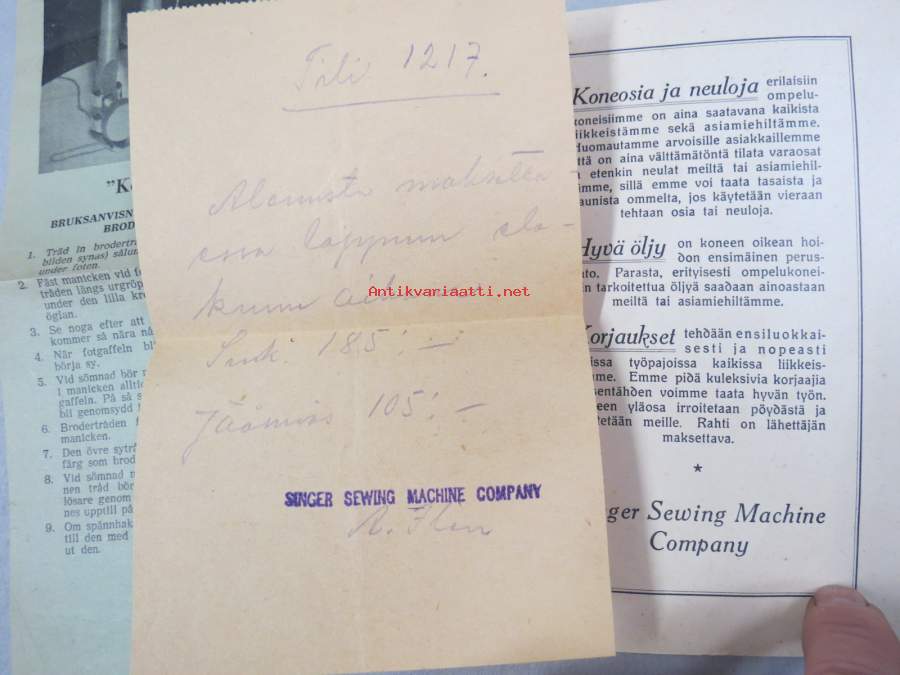 BRUKSANVISN
BROD
1. Tråd in brodertr
bilden synas) sålun
under foten.
2. Fäst manicken vid fo
tråden längs urgröp
under den lilla kro
öglan.
3. Se noga efter att
kommer så nära nå
4. När fotgaffeln bli
börja sy.
5. Vid sömnad bör m
i manicken alltid
gaffeln. På så s
bli genomsydd
6. Brodertråden
manicken.
7. Den övre sytrå
färg som brod
8. Vid sömnad m
nen tråd bör
lösare genom
nes upptill på
9. Om spännhak
till den med
ut den.
Tili 1217.
Smk: 185:—
Jäännös 105:—
SINGER SEWING MACHINE COMPANY
Antikvariaatti.net
Koneosia ja neuloja erilaisiin
ompelu-
koneisiimme on aina saatavana kaikista
liikkeistämme sekä asiamiehiltämme.
Huomautamme arvoisille asiakkaillemme
että on aina välttämätöntä tilata varaosat
etenkin neulat meiltä tai asiamiehil-
imme, sillä emme voi taata tasaista ja
aunista ommelta, jos käytetään vieraan
tehtaan osia tai neuloja.
Hyvä öljy on koneen oikean hoi-
don ensimäinen perus-
hto. Parasta, erityisesti ompelukonei-
n tarkoitettua öljyä saadaan ainoastaan
meiltä tai asiamiehiltämme.
Korjaukset tehdään ensiluokkai-
sesti ja nopeasti
issa työpajoissa kaikissa liikkeis-
me. Emme pidä kuleksivia korjaajia
sentähden voimme taata hyvän työn.
een yläosa irroitetaan pöydästä ja
etään meille. Rahti on lähettäjän
maksettava.
*
ger Sewing Machine
Company